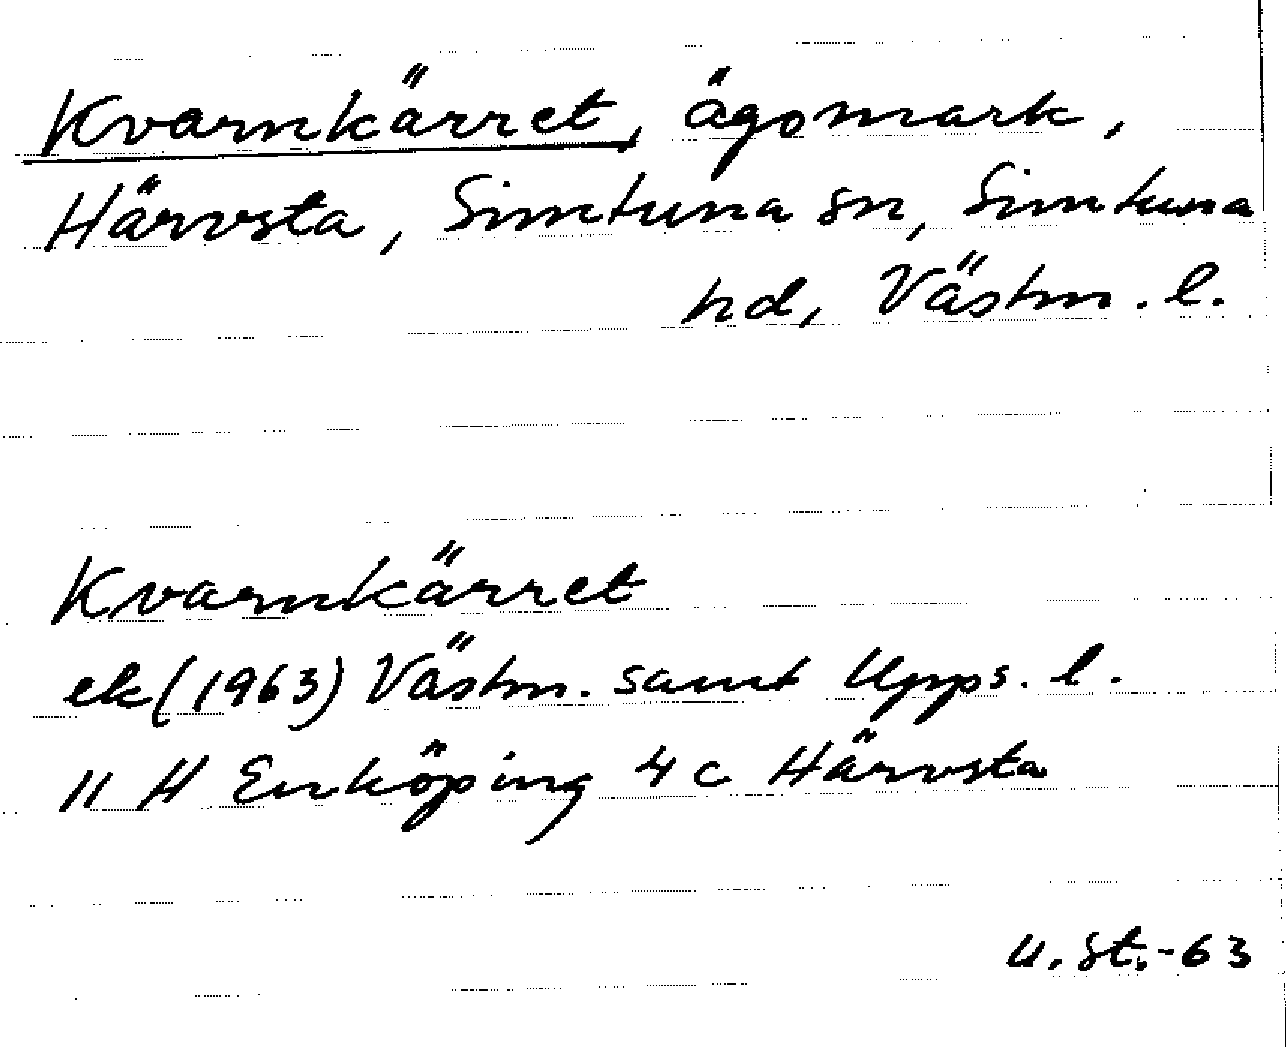 Kvarnkärret, ägomark,
Härvsta, Simtuna sn, Simtuna
hd, Västm. l.
Kvarnkärret
ek (1963) Västm. samt Upps. l.
11 H Enköping 4 c Härvsta
u. st. -63